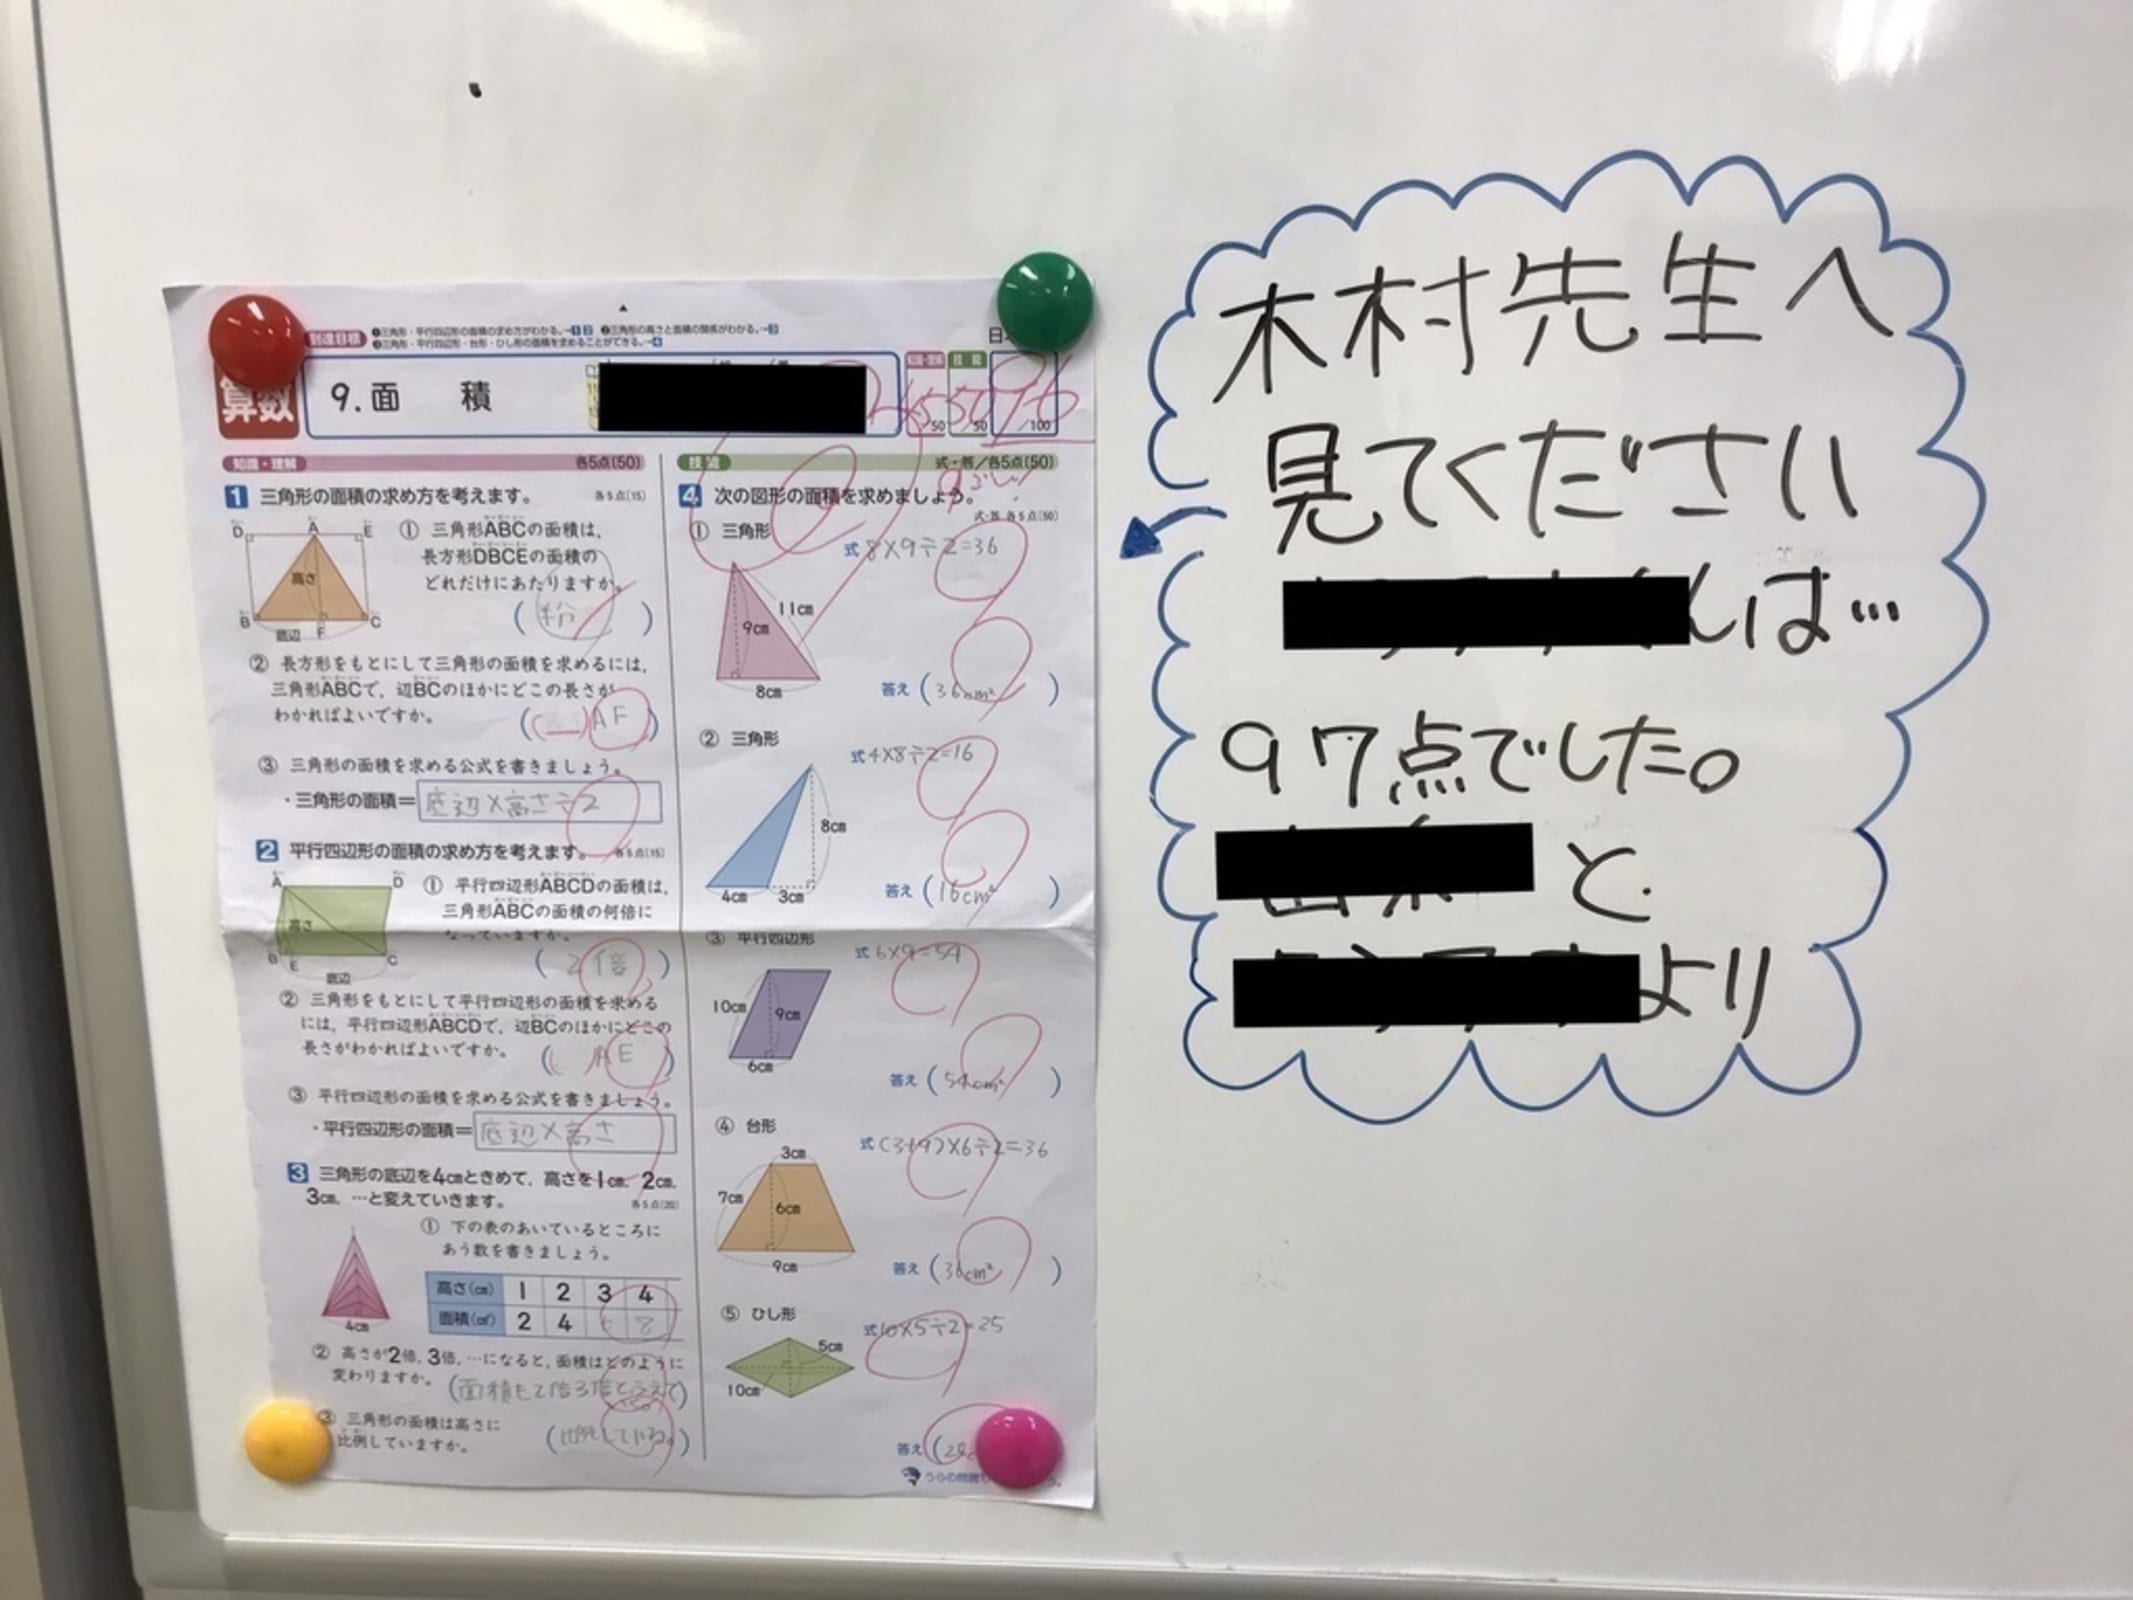 到達目標
❶三角形・平行四辺形の面積の求め方がわかる。→1 2 ❷三角形の高さと面積の関係がわかる。→3
❸三角形・平行四辺形・台形・ひし形の面積を求めることができる。→4
算数
9. 面 積
知識・理解
技能
/50
50
/50
/100
知識・理解 各5点(50)
1 三角形の面積の求め方を考えます。 各5点(15)
D A E
高さ
B F C
底辺
① 三角形ABCの面積は、
長方形DBCEの面積の
どれだけにあたりますか。
② 長方形をもとにして三角形の面積を求めるには、
三角形ABCで、辺BCのほかにどこの長さが
わかればよいですか。
( AF )
③ 三角形の面積を求める公式を書きましょう。
・三角形の面積= 底辺×高さ÷2
2 平行四辺形の面積の求め方を考えます。 各5点(15)
A D
高さ
B E C
底辺
① 平行四辺形ABCDの面積は、
三角形ABCの面積の何倍に
なっていますか。
( 2倍 )
② 三角形をもとにして平行四辺形の面積を求める
には、平行四辺形ABCDで、辺BCのほかにどこの
長さがわかればよいですか。
( AE )
③ 平行四辺形の面積を求める公式を書きましょう。
・平行四辺形の面積= 底辺×高さ
3 三角形の底辺を4cmときめて、高さを1cm、2cm、
3cm、…と変えていきます。 各5点(20)
4cm
① 下の表のあいているところに
あう数を書きましょう。
高さ(cm) 1 2 3 4
面積(cm²) 2 4 6 8
② 高さが2倍、3倍、…になると、面積はどのように
変わりますか。
③ 三角形の面積は高さに
比例していますか。
(比例している。)
技能 式・答/各5点(50)
4 次の図形の面積を求めましょう。
式・答 各5点(50)
① 三角形
式 8×9÷2=36
11cm
9cm
8cm
答え (36cm²)
② 三角形
式 4×8÷2=16
8cm
4cm 3cm
答え (16cm²)
③ 平行四辺形
式 6×9=54
10cm
9cm
6cm
答え (54cm²)
④ 台形
式 (3+9)×6÷2=36
3cm
7cm
6cm
9cm
答え (36cm²)
⑤ ひし形
式 10×5÷2=25
5cm
10cm
答え
うらの問題
木村先生へ
見てください
んは…
97点でした。
と
より